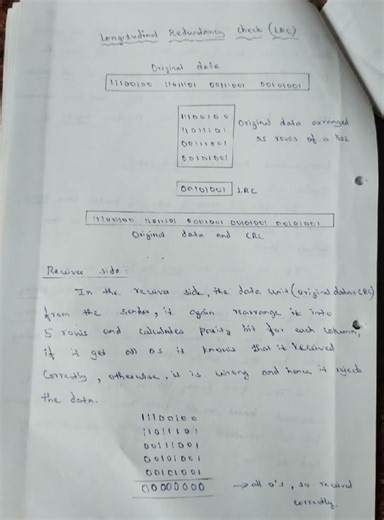 Longitudinal Redundancy check (LRC)
Original data
11100100 11011101 00111001 00101001
11100100
11011101
00111001
00101001
Original data arranged
as rows of a
00101001 LRC
11100100 11011101 00111001 00101001 00101001
Original data and LRC
Reciver side:
In the reciver side, the data unit (original data + LRC)
from the sender, it again rearrange it into
5 rows and calculates parity bit for each column,
if it get all 0s it knows that it received
correctly, otherwise, it is wrong and hence it rejects
the data.
11100100
11011101
00111001
00101001
00101001
00000000 → all 0's, so received
correctly.